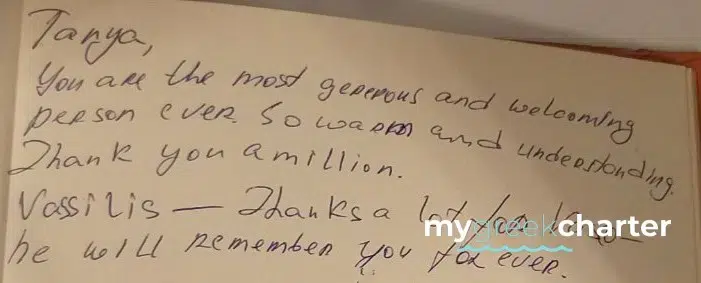 Tanya,
You are the most generous and welcoming
person ever. So warm and understanding.
Thank you a million.
Vassilis — Thanks a lot for
he will remember you for ever.
mygreekcharter